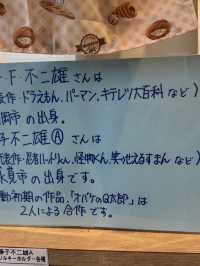 ・F・不二雄 さんは
表作・ドラえもん、パーマン、キテレツ大百科 など)
岡市 の出身。
子不二雄Ⓐ さんは
代表作・忍者ハットリくん、怪物くん、笑ゥせぇるすまん など)
氷見市の出身です。
動初期の作品、「オバケのQ太郎」は
2人による合作です。
藤子不二雄A
リルキーホルダー各種